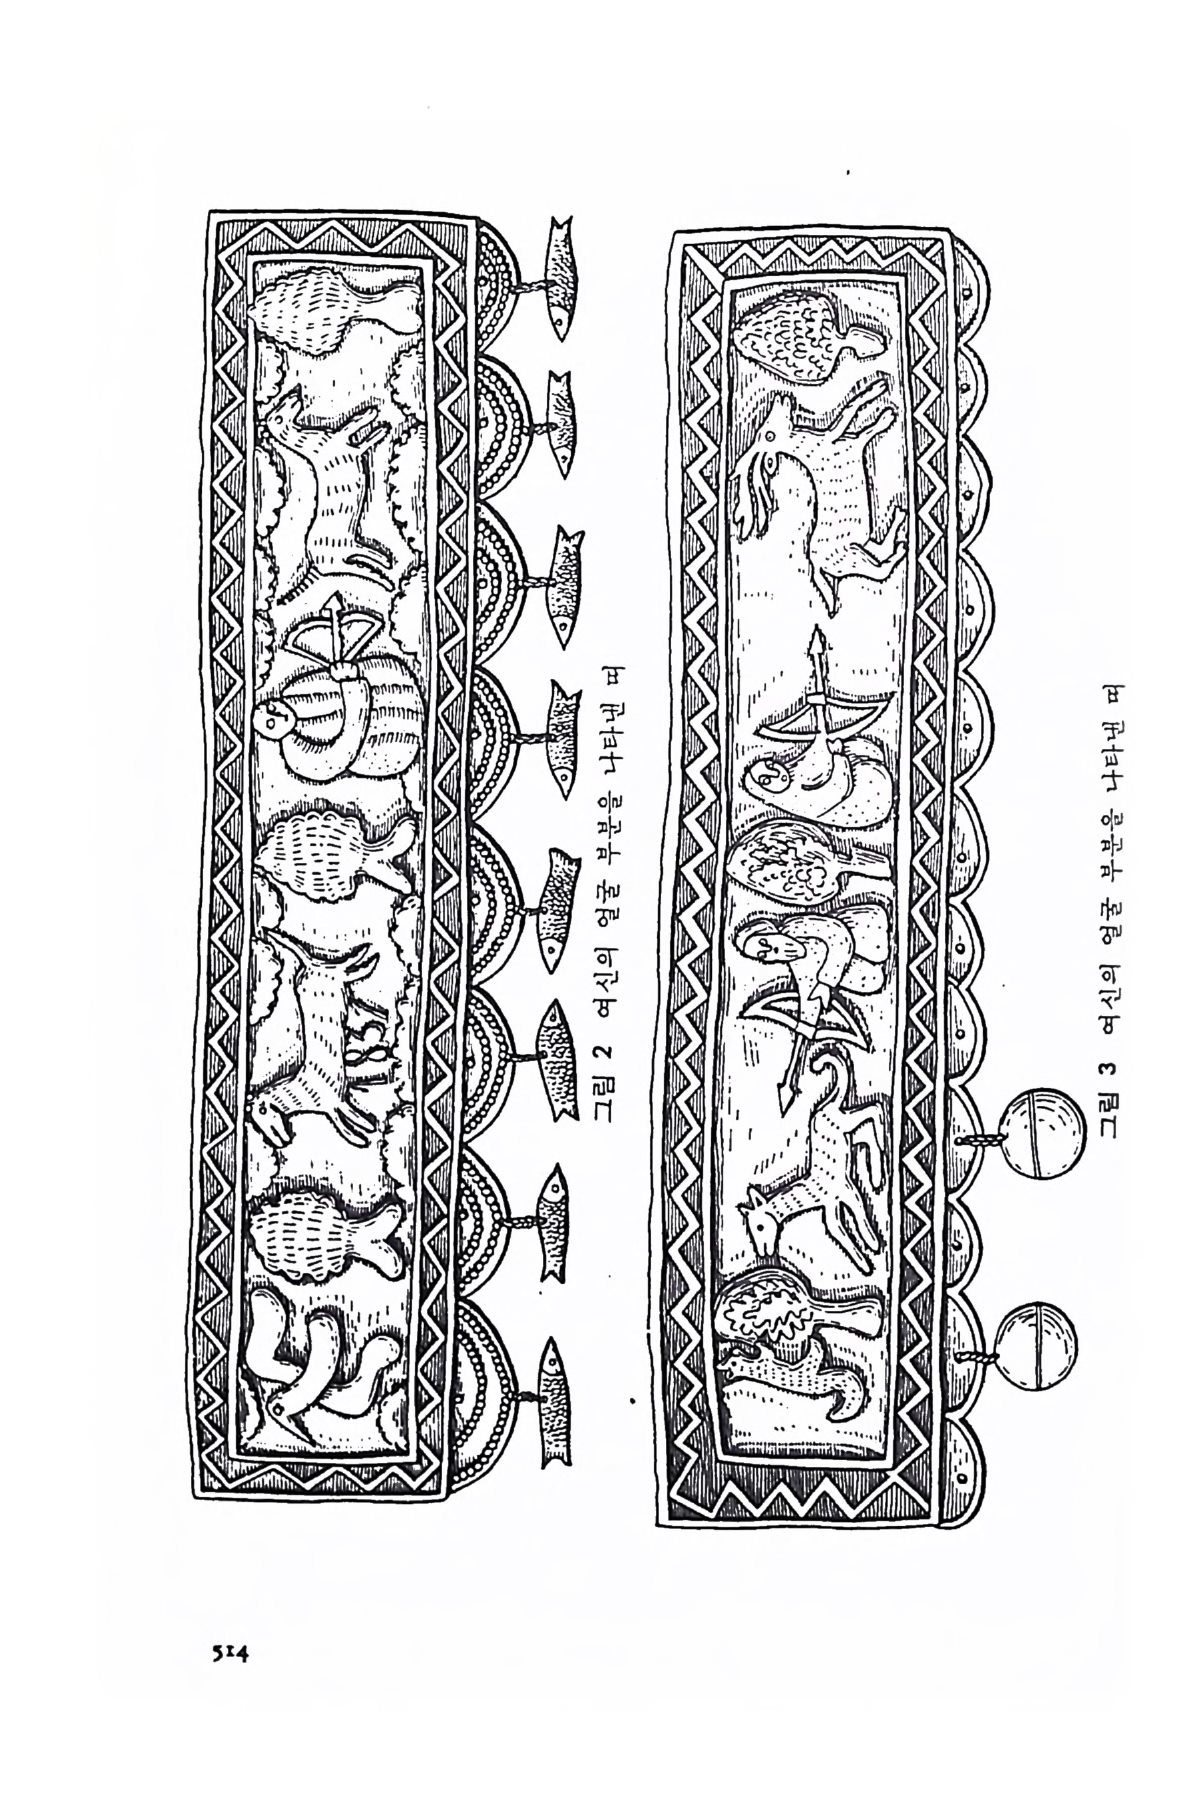 그림 2 여신의 얼굴 부분을 나타낸 띠
그림 3 여신의 얼굴 부분을 나타낸 띠
514